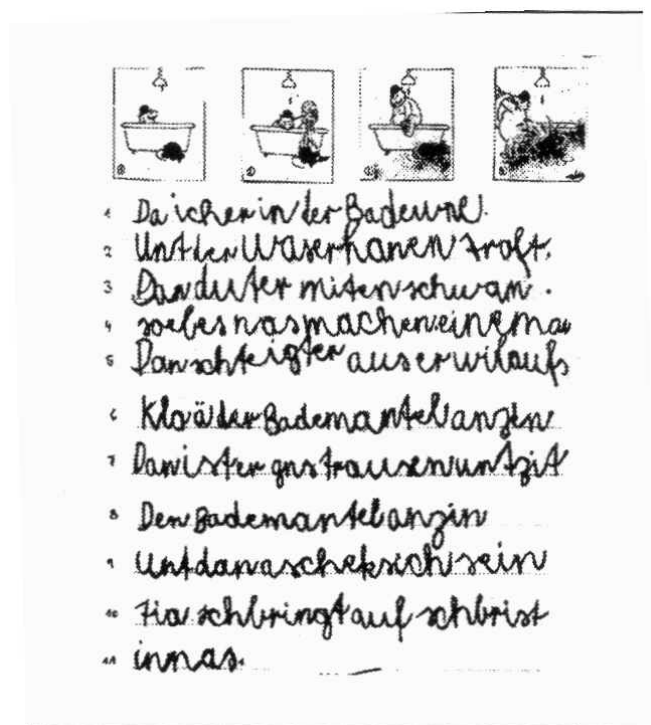 1 Da icher in der Badewne.
2 Unt der Waserhanen troft.
3 Dan dut er miten schwan.
4 soebes nas machen. einema
5 Dan schteigter aus er wil aufs
6 Klo ä der Bademantel anzen
7 Dan ister gns trausen unt zit
8 Den Bademantel anzin
9 Unt dan a schek sich sein
10 Tia schbringt auf schbrist
11 in nas.